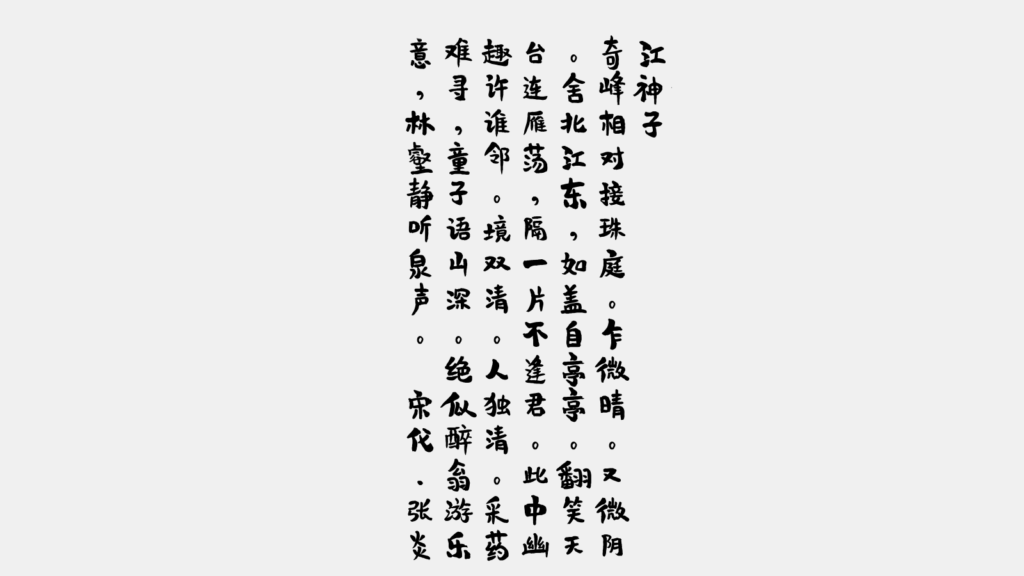 江神子
奇峰相对接珠庭。乍微晴。又微阴
。舍北江东，如盖自亭亭。翻笑天
台连雁荡，隔一片不逢君。此中幽
趣许谁邻。境双清。人独清。采药
难寻，童子语山深。绝似醉翁游乐
意，林壑静听泉声。 宋代.张炎